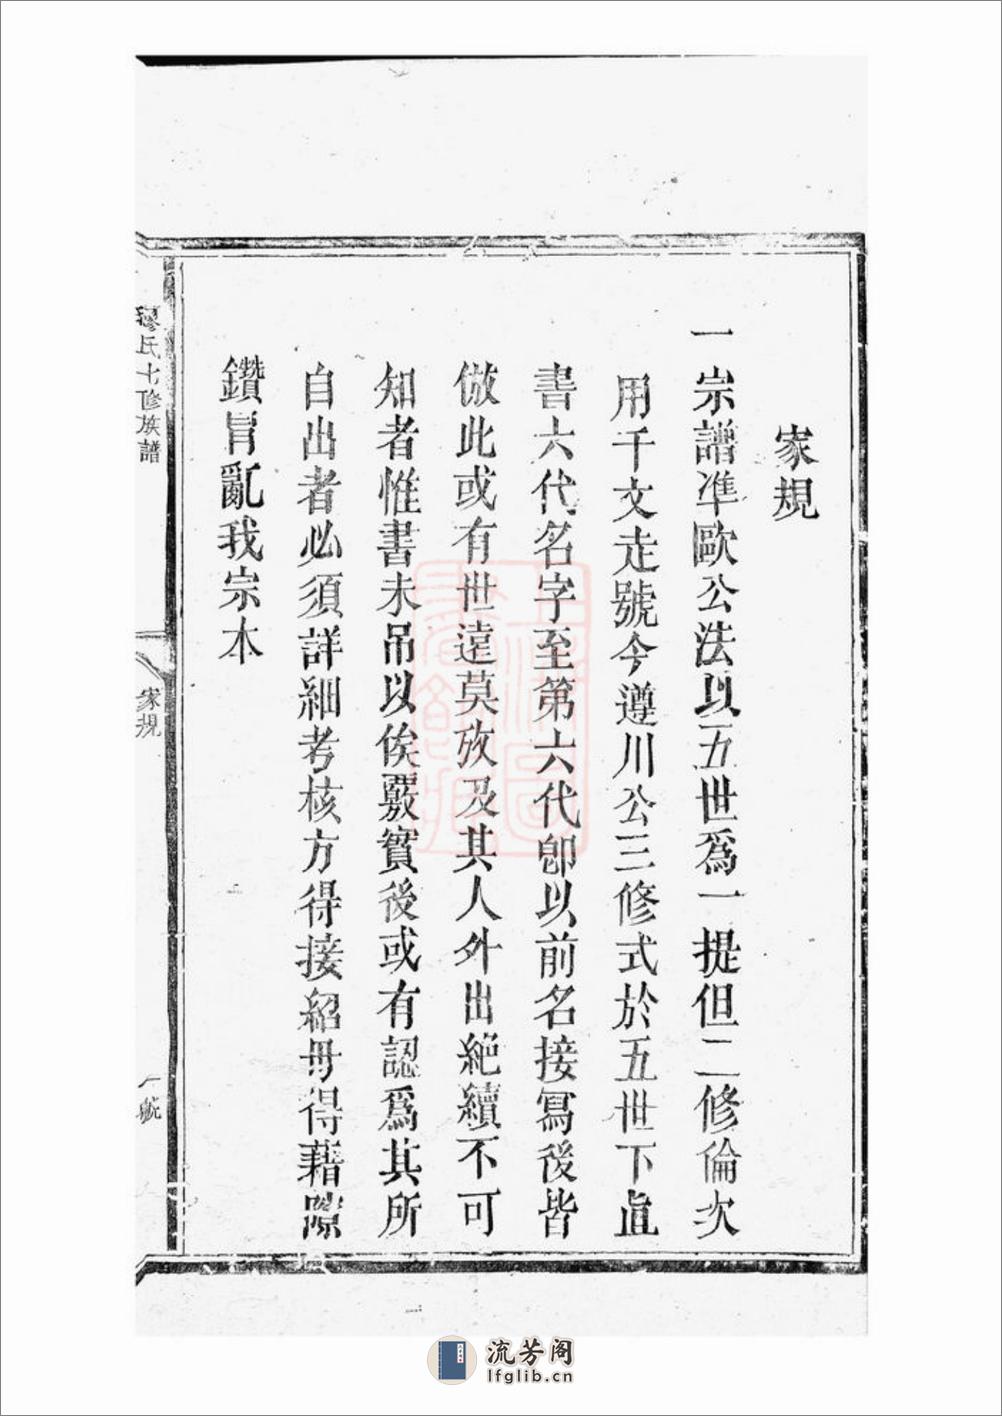 家規
一宗譜準歐公法以五世爲一提但二修倫次
用千文走號今遵川公三修式於五世下直
書六代名字至第六代卽以前名接寫後皆
倣此或有世遠莫攷及其人外出絶續不可
知者惟書未吊以俟覈實後或有認爲其所
自出者必須詳細考核方得接紹毋得藉隙
鑽冒亂我宗本
穆氏七修族譜
家規
一號
上海圖書館藏
流芳阁
lfglib.cn